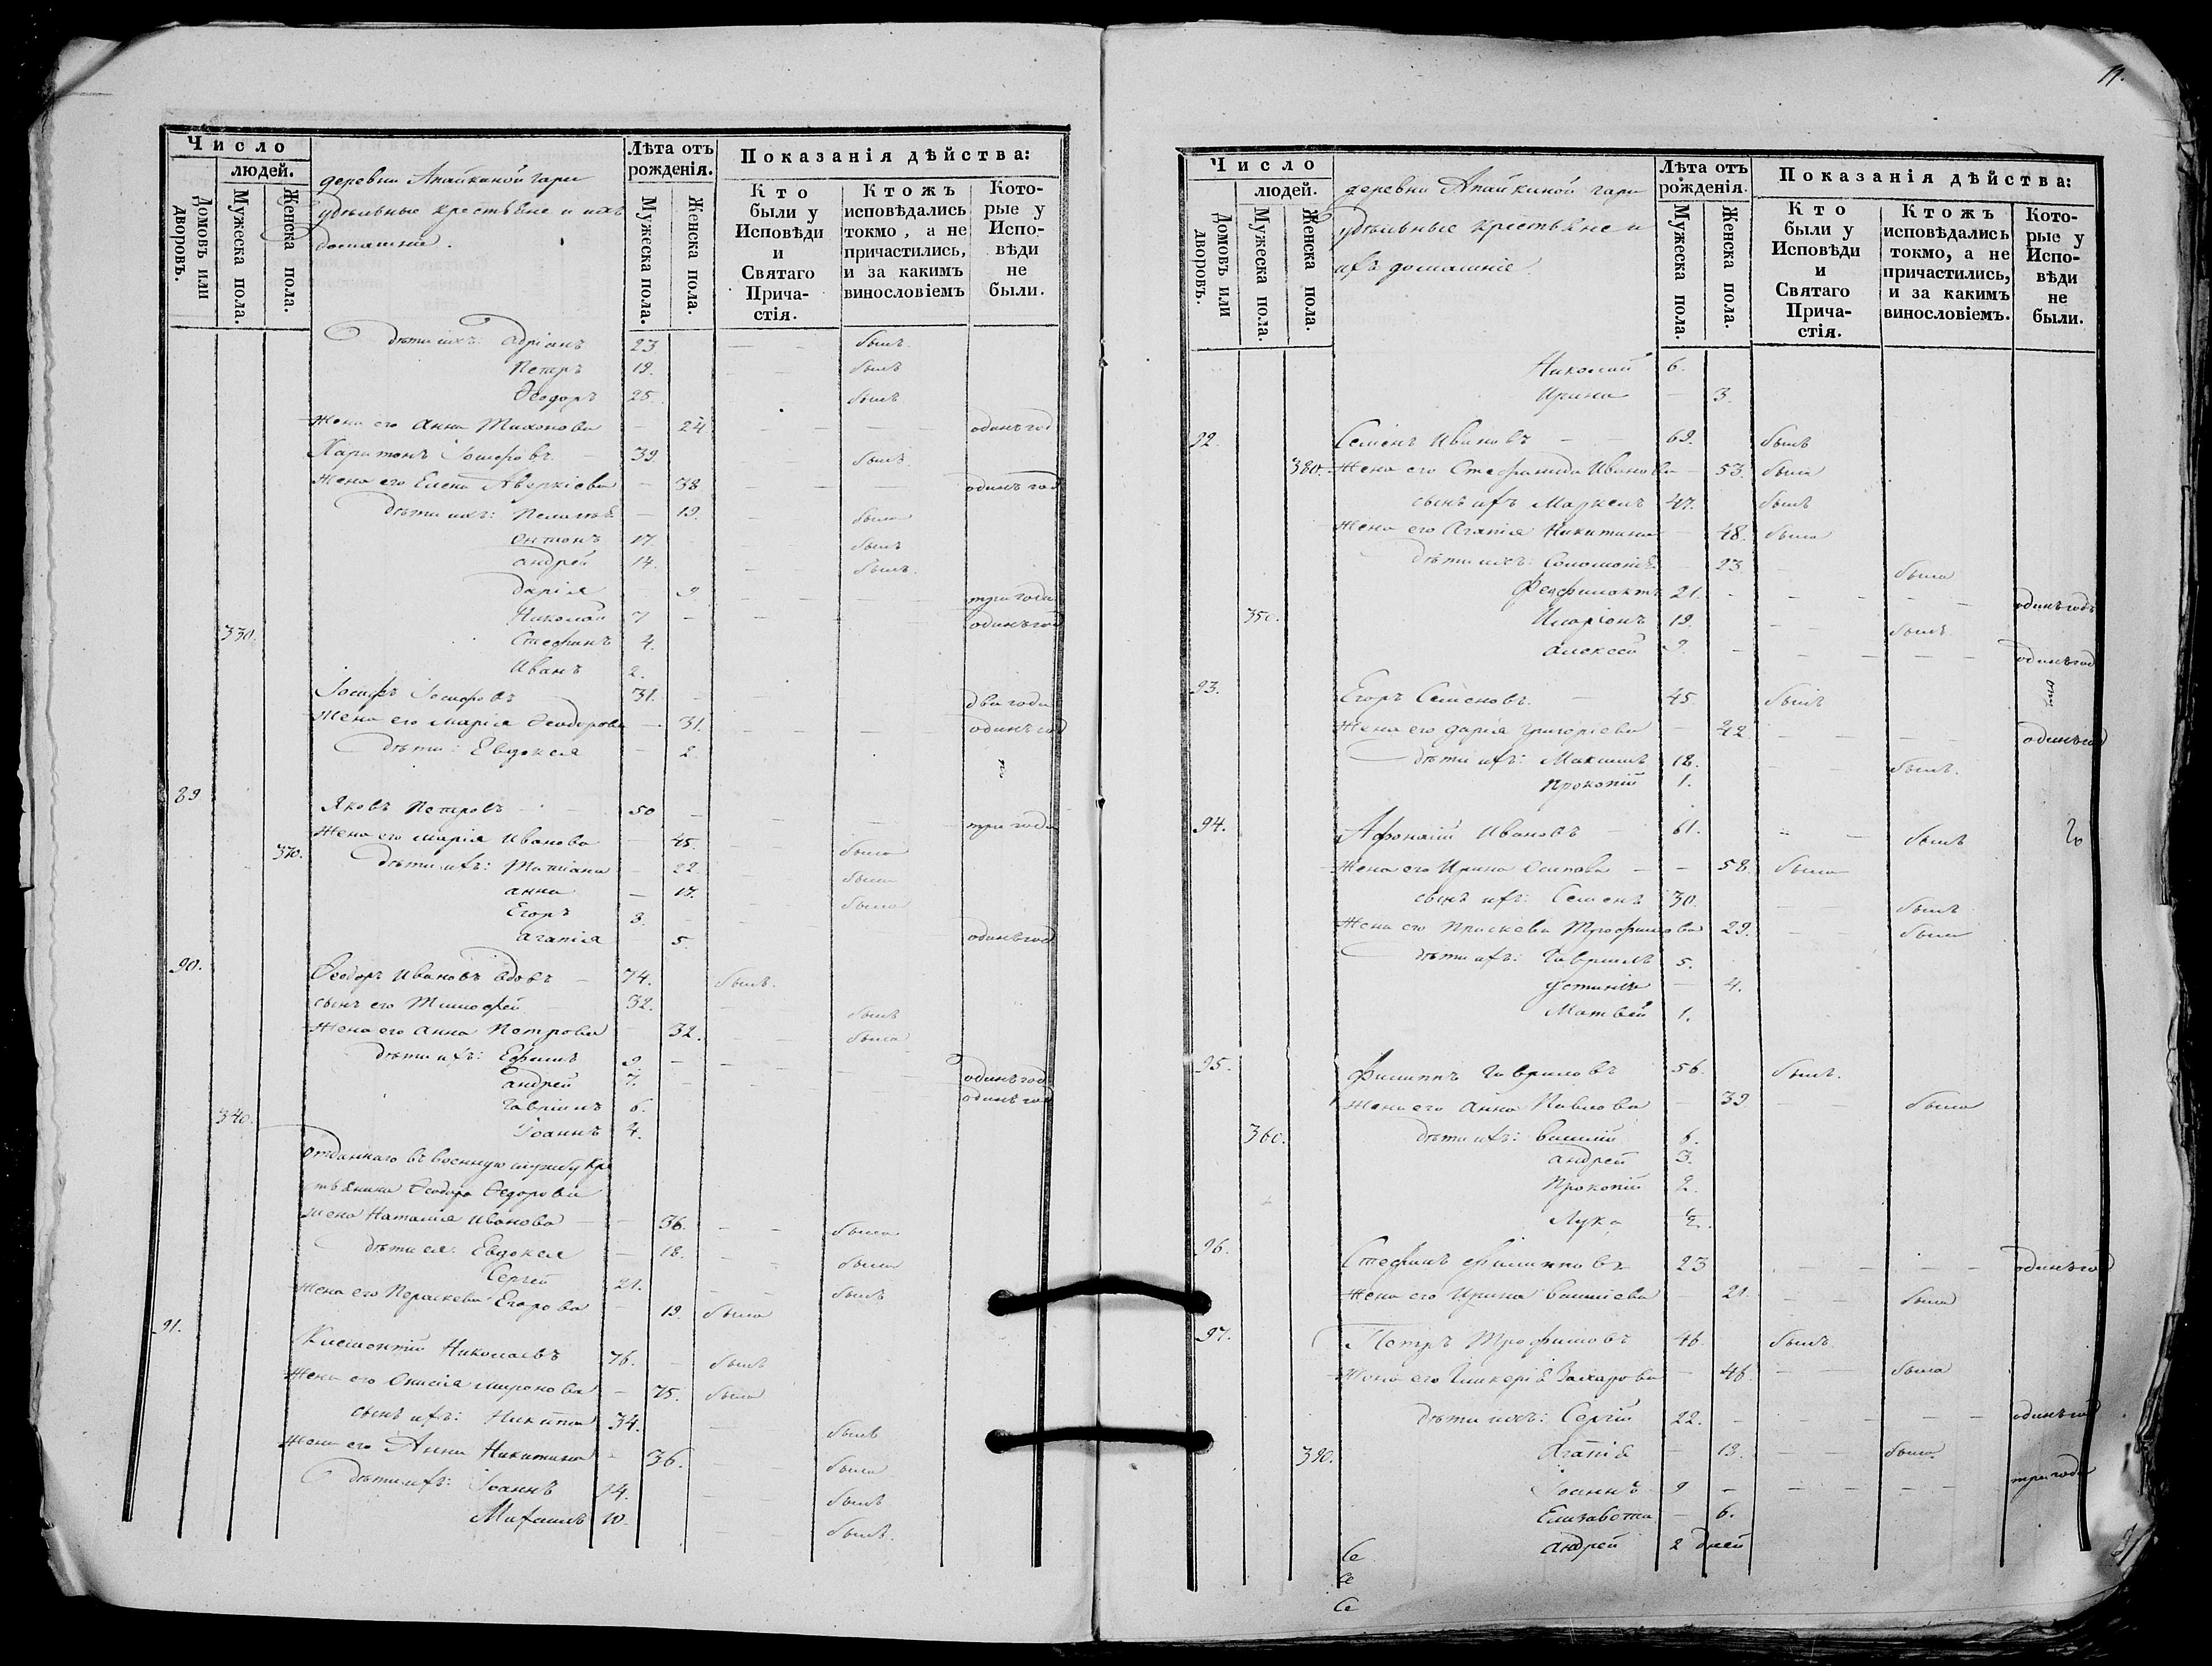 Число
людей.
Домовъ или дворовъ.
Мужеска пола.
Женска пола.
деревни Апайкиной гари
удѣльные крестьяне и ихъ
домашніе.
Лѣта отъ рожденія.
Мужеска пола.
Женска пола.
Показанія дѣйства:
Кто были у Исповѣди и Святаго Прича-стія.
Ктожъ исповѣдались токмо, а не причастились, и за какимъ винословіемъ
Кото-рые у Испо-вѣди не были.
дѣти ихъ: Адріанъ 23 — — былъ
Петръ 19. — — былъ
Ѳеодоръ 25. — — былъ
Жена его Анна Тихонова — 24 — — — — одинъ год
Харитонъ Іосифовъ — 39. — — былъ
Жена его Елена Аверкіева — 38 — — — одинъ год
дѣти ихъ: — 19. — была
Антонъ 17. — былъ
Андрей 14. — — былъ.
Дарія 9 — — — — три года
Николай 7 — — — одинъ год
330. Стефанъ 4.
Иванъ 2.
Іосифъ Іосифовъ 31. — два года
Жена его Марія Ѳеодорова — 31. — — — одинъ год
дѣти: Евдокія — 2.
89 Яковъ Петровъ — — 50 — три года
Жена его Марія Иванова — 45. — — была
370. дѣти ихъ: Татіана — 22. была
Анна — 17. была
Егоръ 3. —
Агапія — 5. одинъ год
90. Ѳеодоръ Ивановъ вдовъ — 74. былъ.
сынъ его Тимоѳей 32. — былъ
Жена его Анна Петрова — 32. — — была
дѣти ихъ: Ефимъ 9. — — — —
Андрей 7. — — — одинъ год
Гавріилъ 6. одинъ год
340. Іоаннъ 4.
Отданнаго въ военную службу кре
стьянина Ѳеодора Ѳедорова
жена Наталія Иванова — — 36. — — была
дѣти ея: Евдокія — 18. — — была
Сергей 21. — — былъ
Жена его Параскева Егорова — 19. была
91. Климентій Николаевъ 76. — былъ
Жена его Мironова — 75. была
сынъ ихъ: Никита 34. — былъ
Жена его Анна Никитина — 36. — — была
дѣти ихъ: Іоаннъ 14. — — былъ
Михаилъ 10. — — былъ.
11.
Число
людей.
Домовъ или дворовъ.
Мужеска пола.
Женска пола.
деревни Апайкиной гари
удѣльные крестьяне и
ихъ домашніе.
Лѣта отъ рожденія.
Мужеска пола.
Женска пола.
Показанія дѣйства:
Кто были у Исповѣди и Святаго Прича-стія.
Ктожъ исповѣдались токмо, а не причастились, и за какимъ винословіемъ.
Кото-рые у Испо-вѣди не были.
Николай 6.
Ирина — 3.
92. Семенъ Ивановъ — — 69. былъ
380. Жена его Стефанида Иванова — 53. была
сынъ ихъ Маркелъ 47. былъ
Жена его Агапія Никитина — 48. была
дѣти ихъ: Соломонія — 23. — была
Феофилактъ 21. — — — — одинъ годъ
350. Иларіонъ 19. — — былъ
Алексей 9. — — — — — одинъ год
93. Егоръ Семеновъ. — 45. былъ
Жена его Дарія Григоріева — 42 — — — — одинъ год
дѣти ихъ: Максимъ 18. — — былъ.
Прокопій 1.
94. Афонасій Ивановъ — 61. — — былъ
Жена его Ирина Осипова — — 58. была
сынъ ихъ: Семенъ 30. — — былъ
Жена его Праскева Трофимова 29. — — была
дѣти ихъ: Гавріилъ 5.
Устинія — 4.
Матвей 1.
95. Филиппъ Гавриловъ 56. былъ.
Жена его Анна Павлова — 39 — — была
360. дѣти ихъ: Василій 6.
Андрей 3.
Прокопій 2.
Лука ½.
96. Стефанъ Филипповъ 23 — — — — одинъ год
Жена его Ирина Василіева — 21. — — была
97. Петръ Трофимовъ 46. былъ
Жена его Гликерія Захарова — 46. — — была
дѣти ихъ: Сергій 22. — — — — — одинъ год
390. Агапія — 19. — — была
Іоаннъ 9 — — — — — три года
Елизавета — 6.
Андрей 2 дней
Се
Се
Се